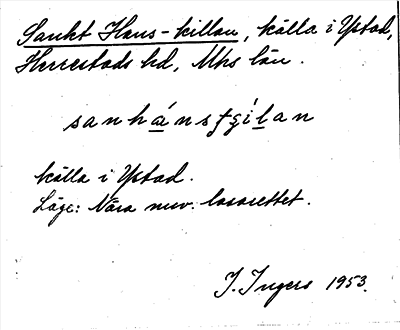 Sankt Hans-killan, källa i Ystad,
Herrestads hd, Mhs län.
sanhánsʈgílan
källa i Ystad.
Läge: Nära nuv. lasarettet.
J. Ingers 1953.